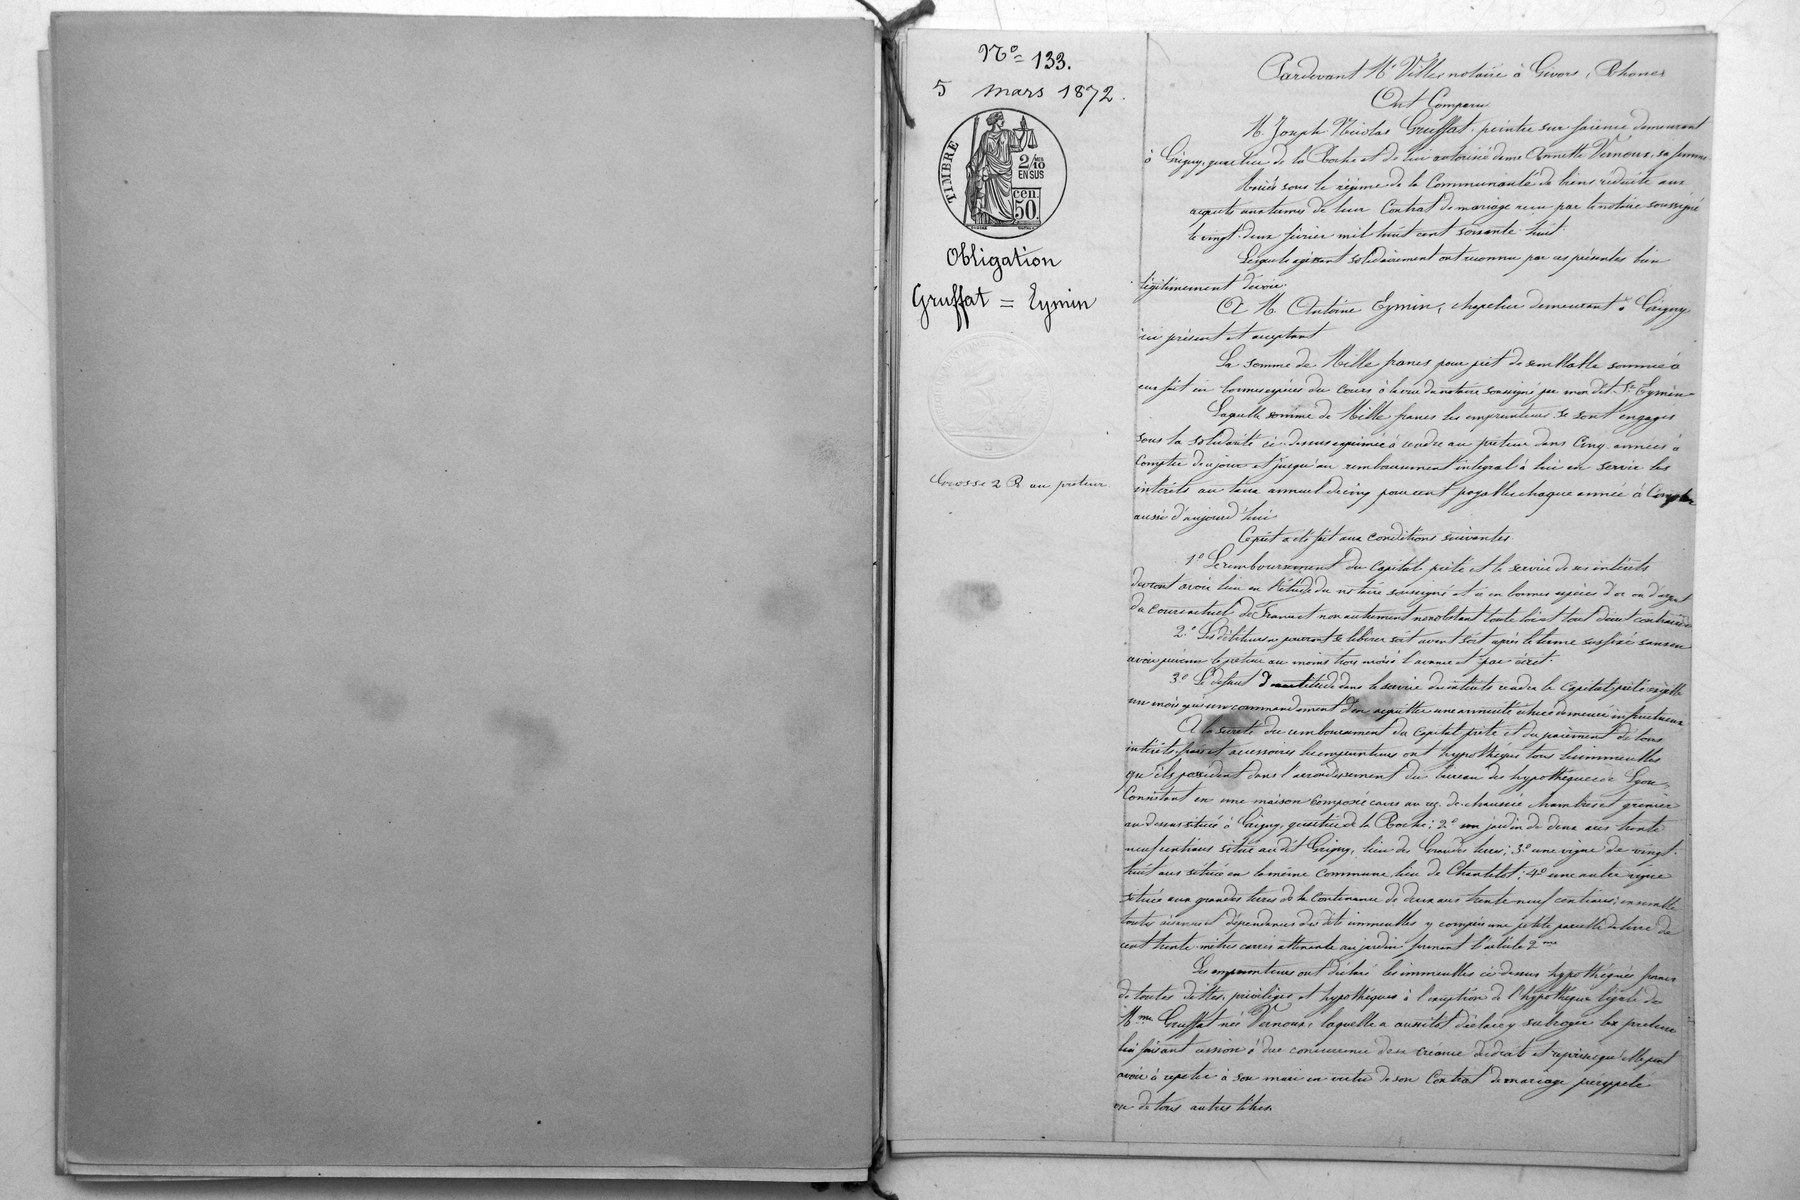 N° 133.
5 mars 1872.
TIMBRE
2/10
EN SUS
cen.
50.
Obligation
Gruffat = Eymin
Grosse 2 R au prêteur
Pardevant Me Villes notaire à Givors, Rhône
Ont Comparu
M. Joseph Nicolas Gruffat, peintre sur faïence demeurant
à Grigny, quartier de la Roche et de lui autorisée dame Annette Vernoux, sa femme
Mariés sous le régime de la Communauté de biens réduite aux
acquets aux termes de leur Contrat de mariage reçu par le notaire soussigné
le vingt deux février mil huit cent soixante huit.
Lesquels agissant solidairement ont reconnu par ces présentes bien
légitimement devoir
A M Antoine Eymin, chapelier demeurant à Grigny
ici présent et acceptant
La somme de Mille francs pour prêt de semblable somme à
eux fait en bonnes espèces du cours à la vue du notaire soussigné par mon dit Sr Eymin
Laquelle somme de Mille francs les emprunteurs se sont engagés
sous la solidarité ci-dessus exprimée à rendre au prêteur dans Cinq années à
Compter de ce jour et jusqu'au remboursement intégral à lui en servir les
intérêts au taux annuel de cinq pour cent payables chaque année à Compter
aussi d'aujourd'hui
Ce prêt a été fait aux conditions suivantes.
1° Le remboursement du Capital prêté et le service de ses intérêts
devront avoir lieu en l'étude du notaire soussigné et en bonnes espèces d'or ou d'argent
du cours actuel de France et non autrement nonobstant toute loi et tout décret contraires
2° Les débiteurs ne pourront se libérer soit avant soit après le terme susfixé sans en
avoir prévenu le prêteur au moins trois mois à l'avance et par écrit.
3° Le défaut d'exactitude dans le service des intérêts rendra le Capital prêté exigible
un mois après un commandement d'en acquitter une annuité échue demeuré infructueux
A la sureté du remboursement du Capital prêté et du paiement de tous
intérêts, frais et accessoires les emprunteurs ont hypothéqué tous les immeubles
qu'ils possèdent dans l'arrondissement du bureau des hypothèques de Lyon,
Consistant en une maison composée caves au rez-de-chaussée chambres et grenier
au dessus située à Grigny, quartier de la Roche; 2° un jardin de deux ares trente
neuf centiares situé au dit Grigny, lieu des Grandes terres; 3° une vigne de vingt
huit ares située en la même commune lieu de Chantelot; 4° une autre vigne
située aux grandes terres de la Contenance de deux ares trente neuf centiares; ensemble
toutes aisances et dépendances des dits immeubles y compris une petite parcelle de terre de
cent trente mètres carrés attenante au jardin formant l'article 2me
Les emprunteurs ont déclaré les immeubles ci dessus hypothéqués francs
de toutes dettes, privilèges et hypothèques à l'exception de l'hypothèque légale de
Mme Gruffat née Vernoux, laquelle a aussitôt déclaré y subroger le prêteur
lui faisant cession à due concurrence des créances droits et reprises qu'elle peut
avoir à répéter à son mari en vertu de son Contrat de mariage préappelé
ou de tous autres titres.